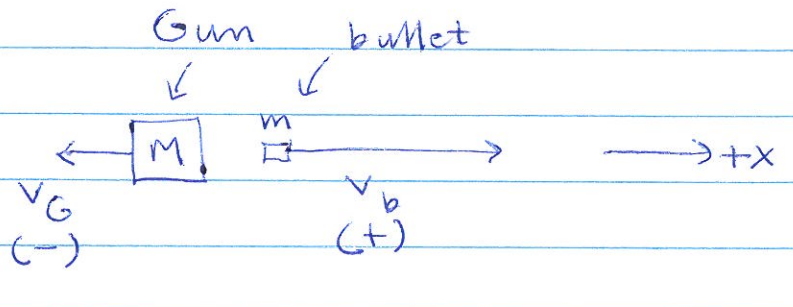 Gun bullet
m
M +x
V_G V_b
(-) (+)